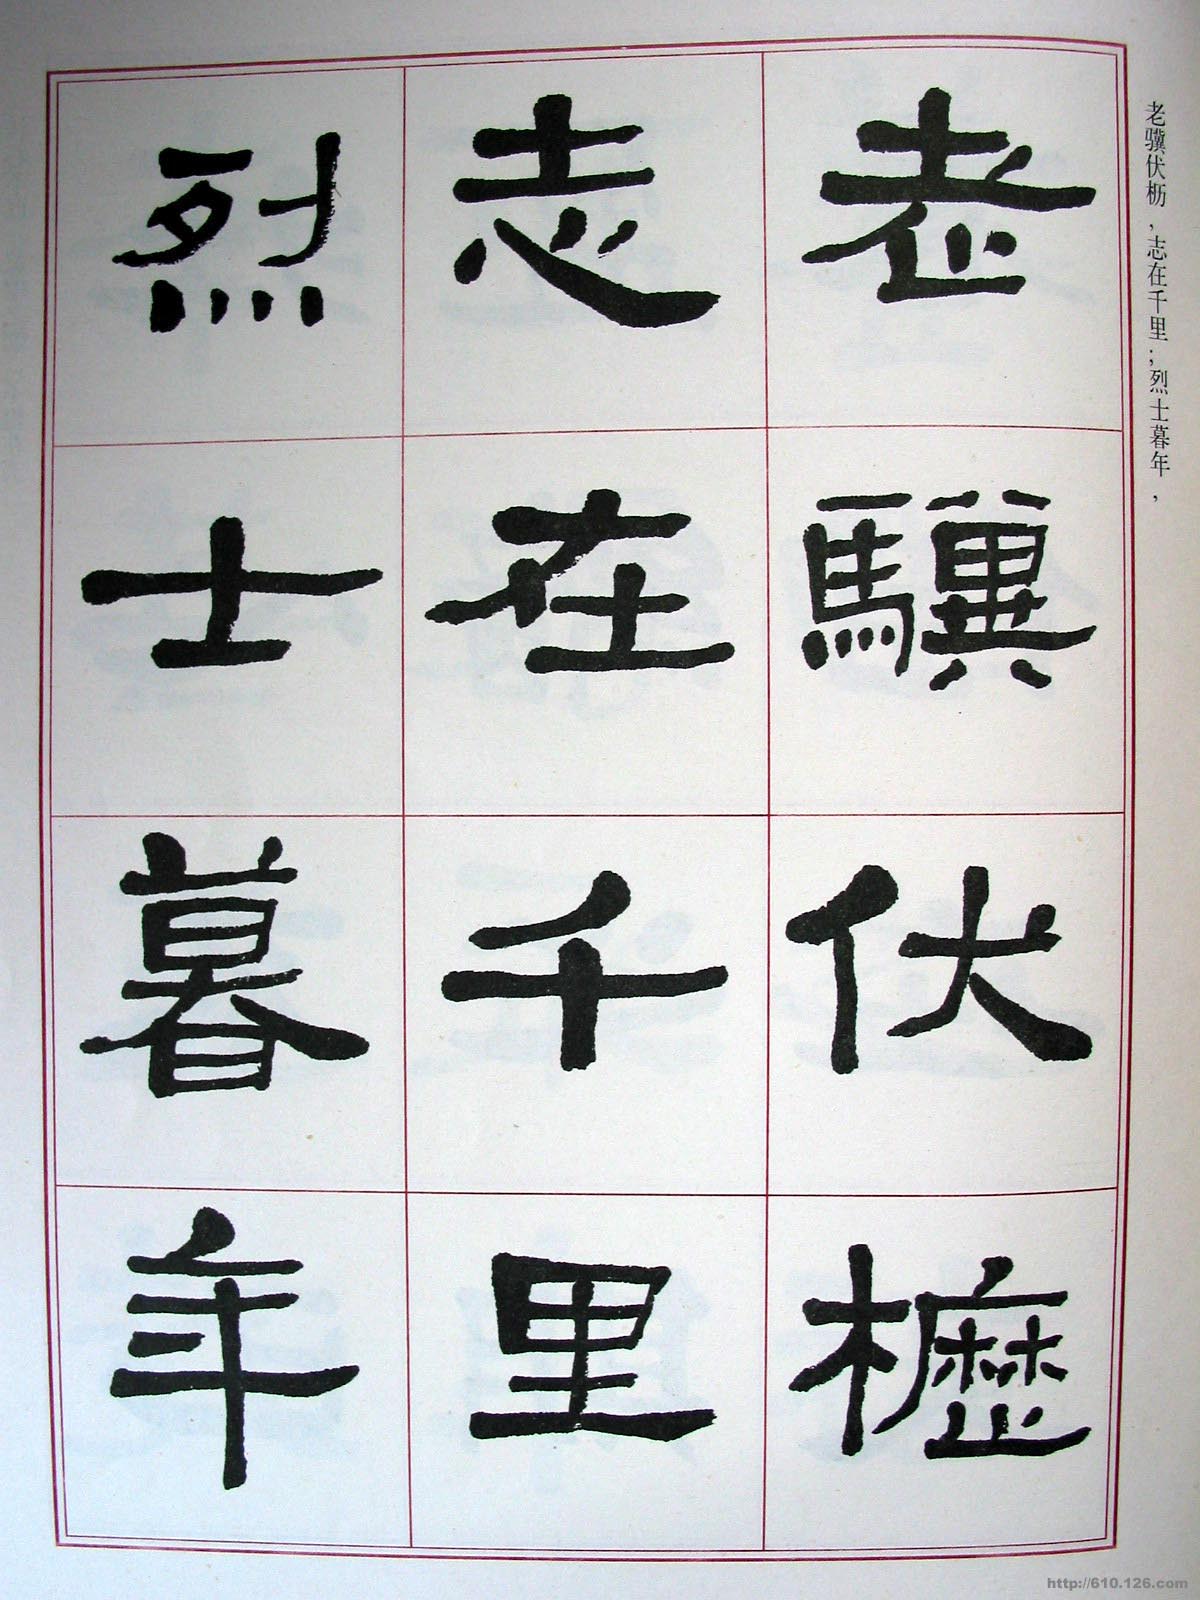 老驥伏櫪
志在千里
烈士暮年
老骥伏枥，志在千里；烈士暮年，
http://610.126.com